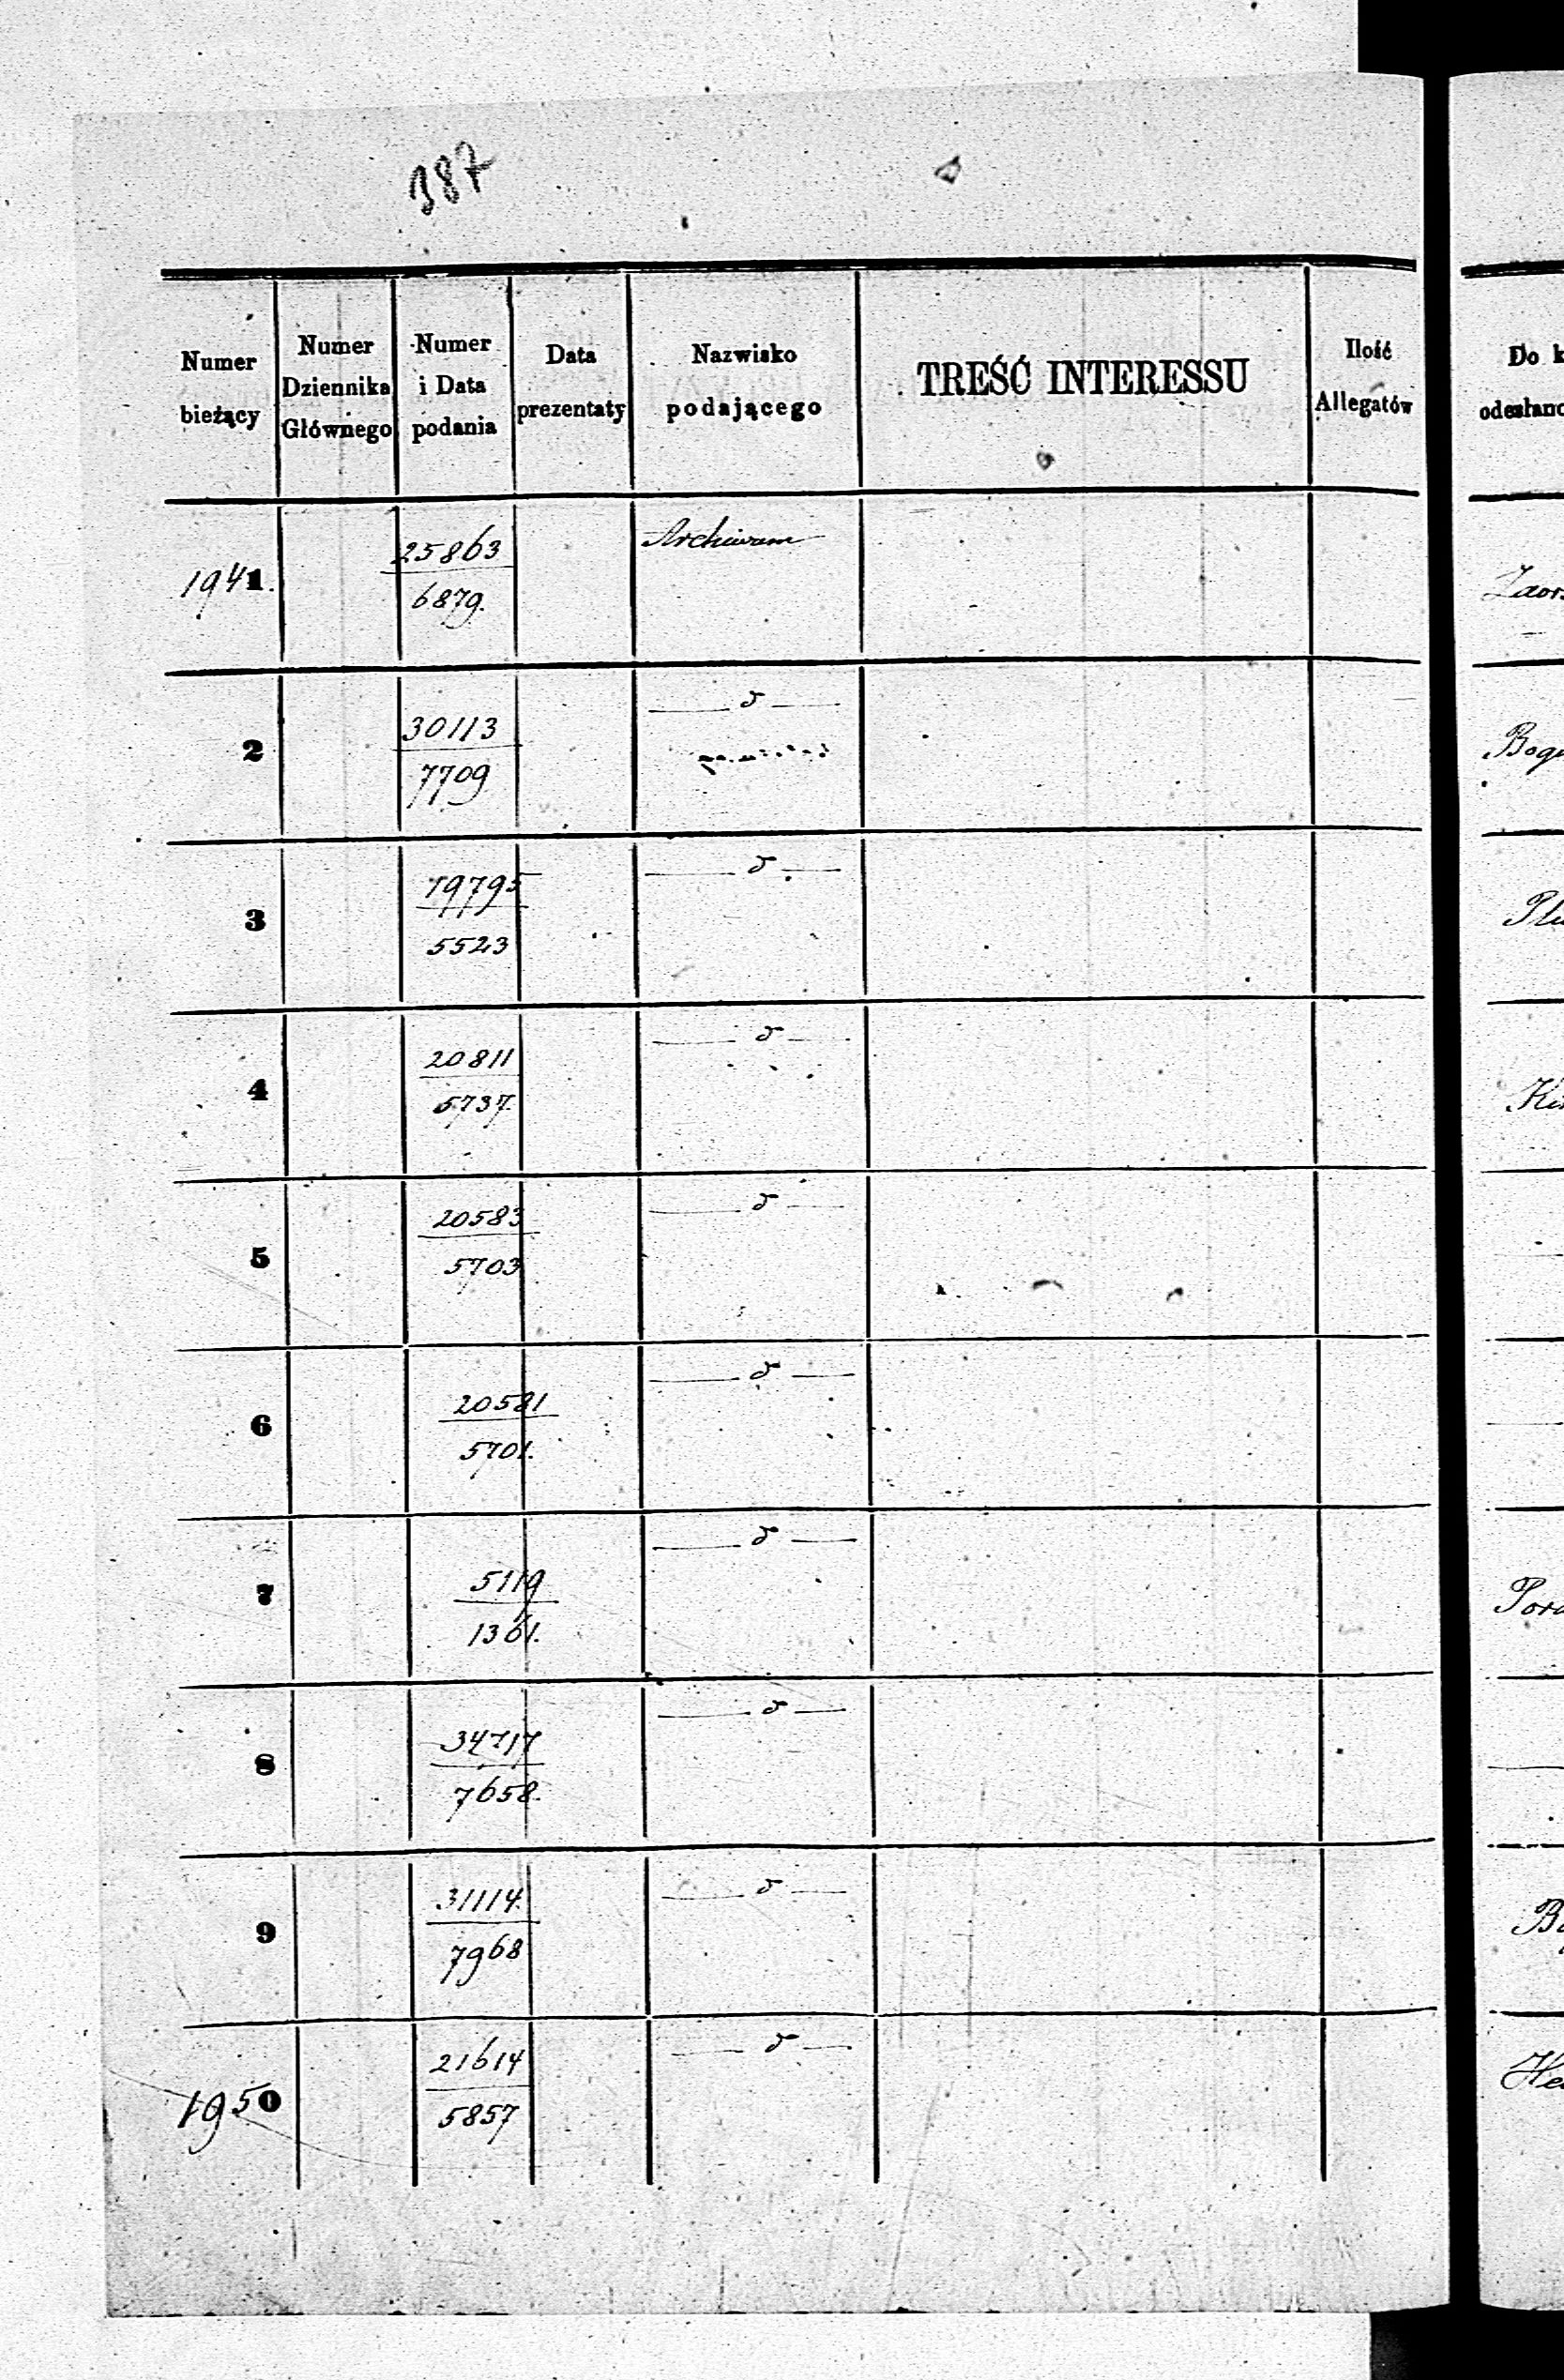 387
Numer bieżący
Numer Dziennika Głównego
Numer i Data podania
Data prezentaty
Nazwisko podającego
TREŚĆ INTERESSU
Ilość Allegatów
Do k
odesłano
1941.
25863
6879.
Archiwum
2
30113
7709
— d —
3
19795
5523
— d —
4
20811
5737.
— d —
5
20583
5703
— d —
6
20581
5701.
— d —
7
5119
1361.
— d —
Pora
8
34717
7658.
— d —
9
31114.
7968
— d —
1950
21614
5857
— d —